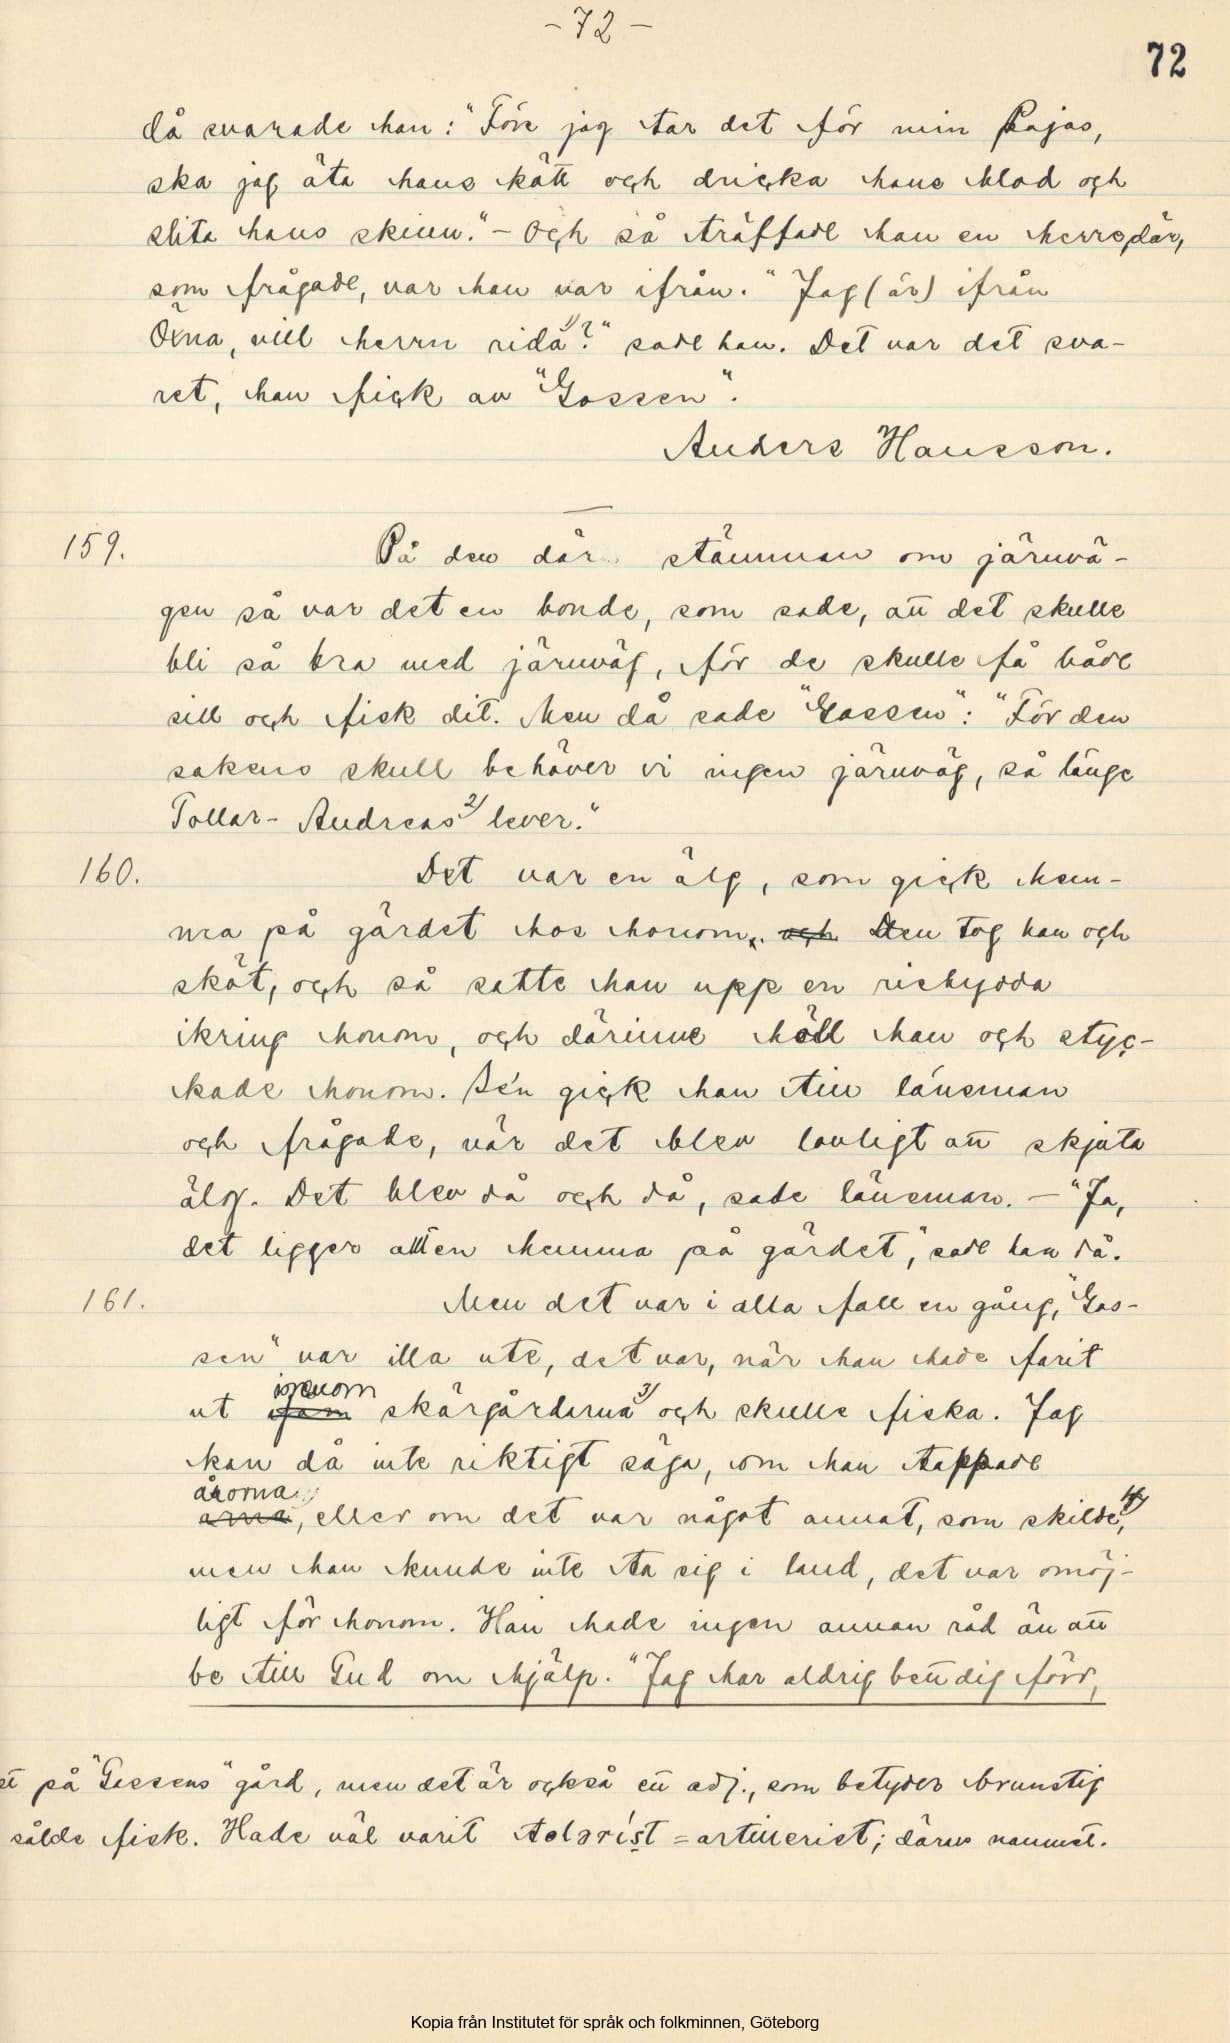 -72-
72
då svarade han: "Före jag tar det för min Pajas,
ska jag äta hans kätt och dricka hans blod och
slita hans skinn." - Och så träffade han en herre där,
som frågade, var han var ifrån. "Jag (är) ifrån
Öxna, vill herrn rida 1)?" sade han. Det var det sva-
ret, han fick av "Gossen".
Anders Hansson.
159. På den där stämman om järnvä-
gen så var det en bonde, som sade, att det skulle
bli så bra med järnväg, för de skulle få både
sill och fisk dit. Men då sade "Gossen": "För den
sakens skull behöver vi ingen järnväg, så länge
Tollar-Andreas 2) lever."
160. Det var en älg, som gick hem-
ma på gärdet hos honom. och Den tog han och
sköt, och så satte han upp en rishydda
ikring honom, och därinne höll han och styc-
kade honom. Se'n gick han till länsman
och frågade, när det blev lovligt att skjuta
älg. Det blev då och då, sade länsman. - "Ja,
det ligger allt en hemma på gärdet," sade han då.
161. Men det var i alla fall en gång, "Gos-
sen" var illa ute, det var, när han hade farit
igenom
ut skärgårdarna 3) och skulle fiska. Jag
kan då inte riktigt säga, om han tappade
årorna
arna, eller om det var något annat, som skilde 4),
men han kunde inte ta sig i land, det var omöj-
ligt för honom. Han hade ingen annan råd än att
be till Gud om hjälp. "Jag har aldrig bett dig förr,
på "Gossens" gård, men det är också ett adj., som betyder brunstig
sålde fisk. Hade väl varit = artillerist; därav namnet.
Kopia från Institutet för språk och folkminnen, Göteborg